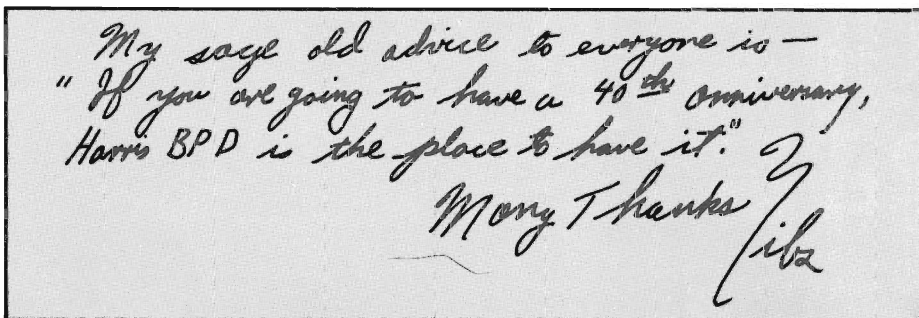 My sage old advice to everyone is —
"If you are going to have a 40th anniversary,
Harris BPD is the place to have it."
Many Thanks